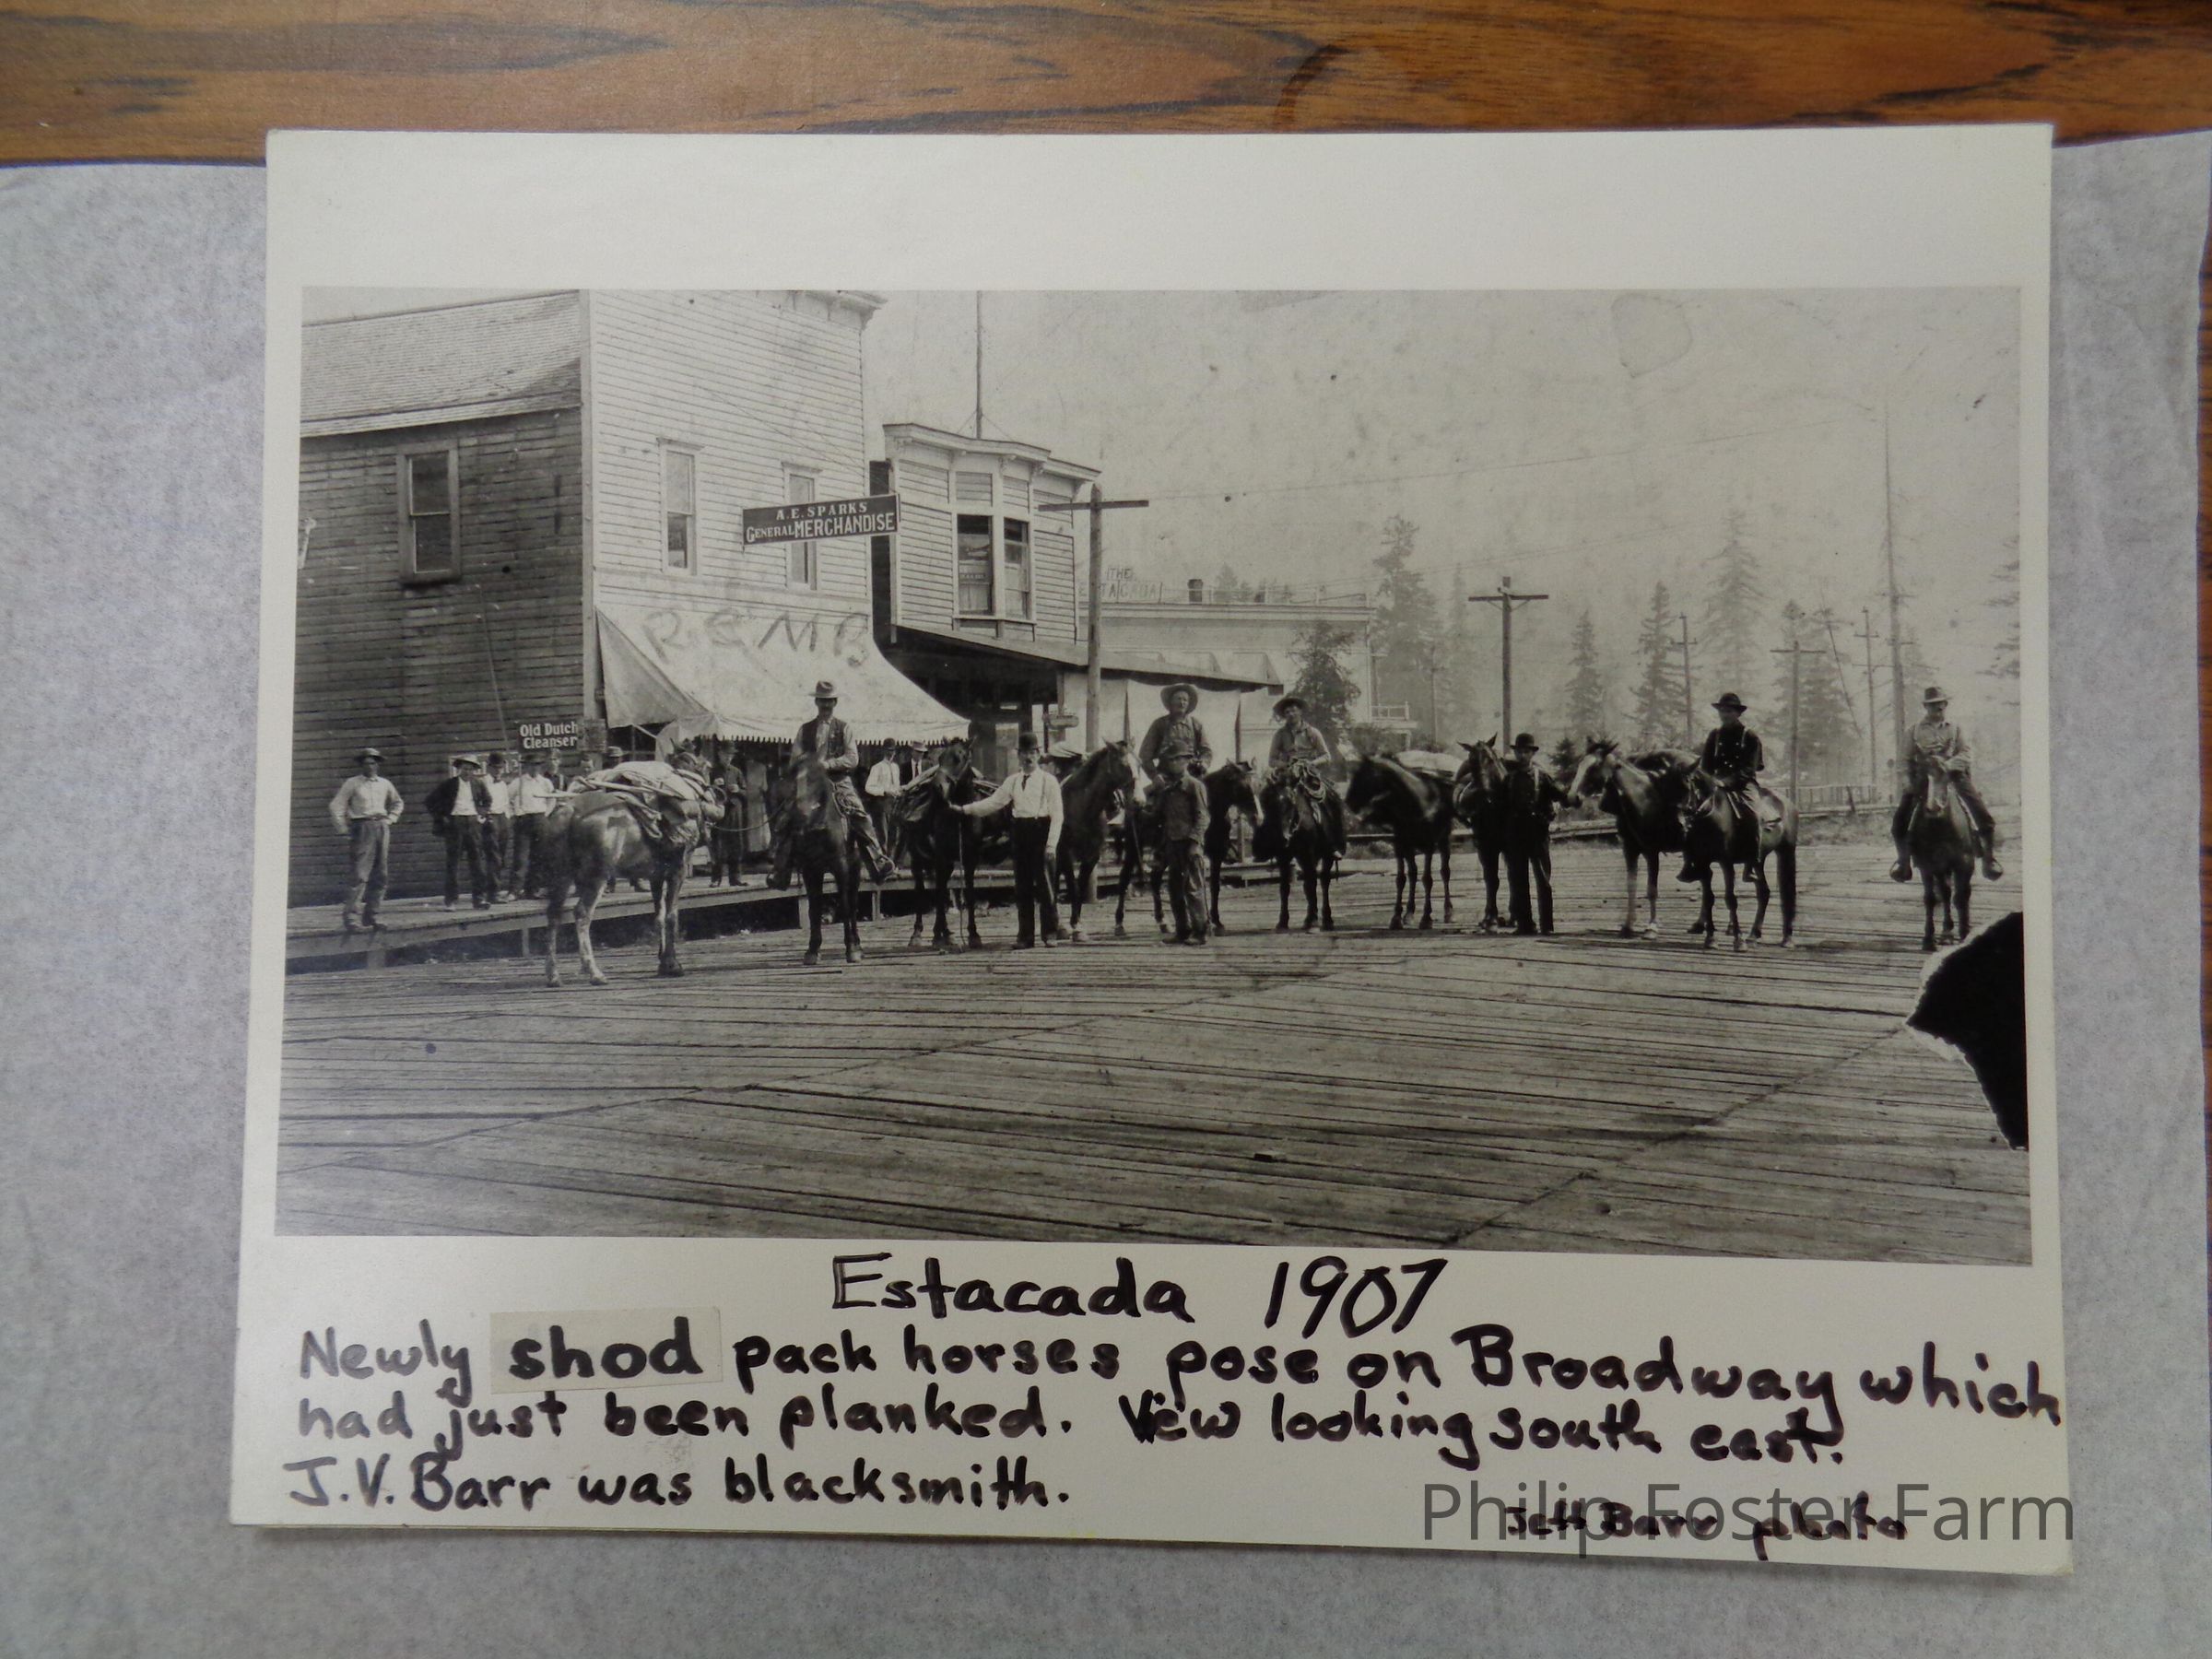 A.E. SPARKS
GENERAL MERCHANDISE
THE
ESTACADA
REMB
Old Dutch
Cleanser
Estacada 1907
Newly shod pack horses pose on Broadway which
had just been planked. View looking south east.
J.V. Barr was blacksmith.
Philip Foster Farm
Jeff Barr photo